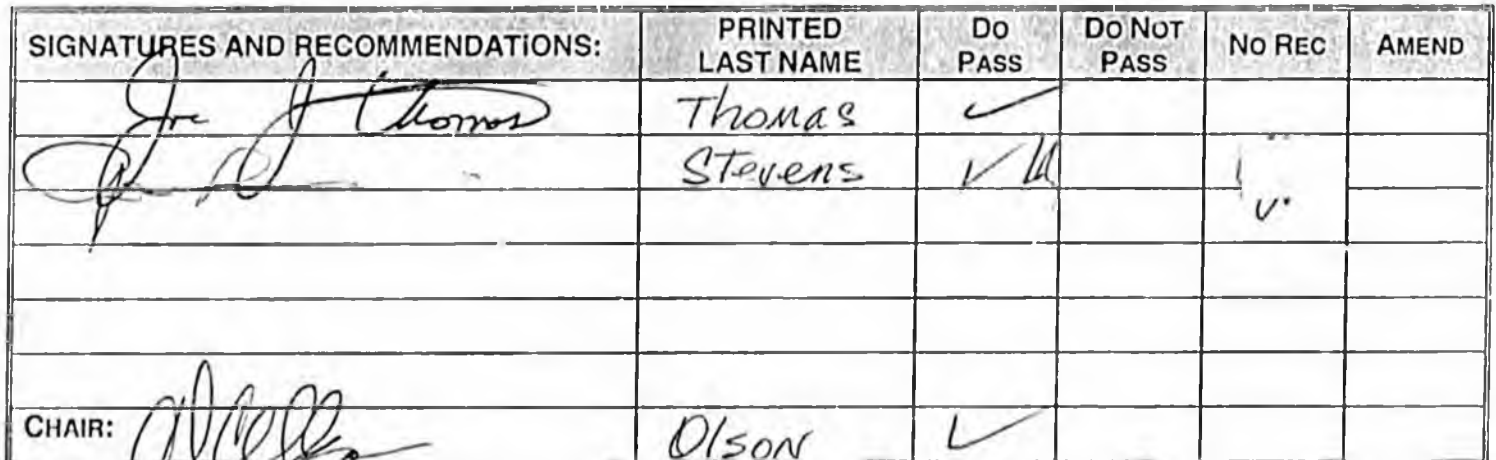 SIGNATURES AND RECOMMENDATIONS: PRINTED LAST NAME DO PASS DO NOT PASS NO REC AMEND
Joe J Thomas Thomas ✓
Stevens ✓
✓
CHAIR: Olson ✓